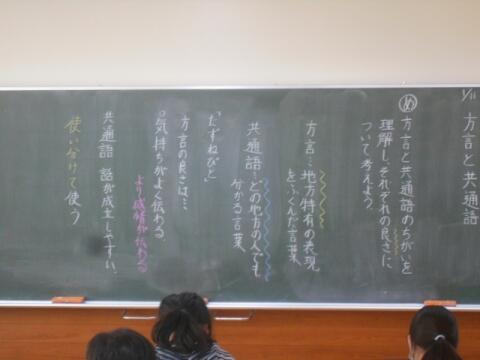 1/11
方言と共通語
め 方言と共通語のちがいを
理解し、それぞれの良さに
ついて考えよう
方言…地方特有の表現
をふくんだ言葉
共通語…どの地方の人でも
分かる言葉
「たずねびと」
方言の良さは…
気持ちがよく伝わる
より感情が伝わる
共通語 話が成立しやすい。
使い分けて使う